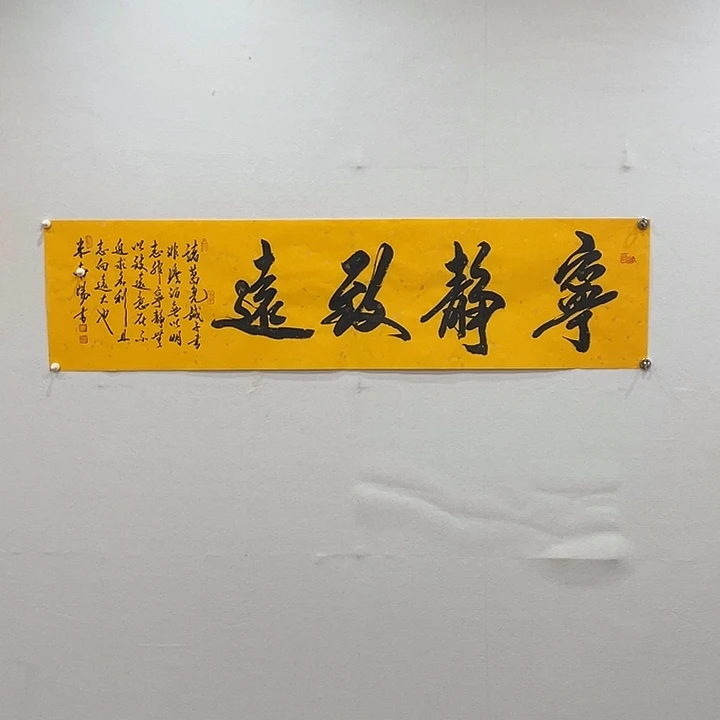 寧靜致遠
諸葛亮誡子書
非澹泊無以明
志非寧靜無
以致遠意在不
追求名利且
志向遠大也
書